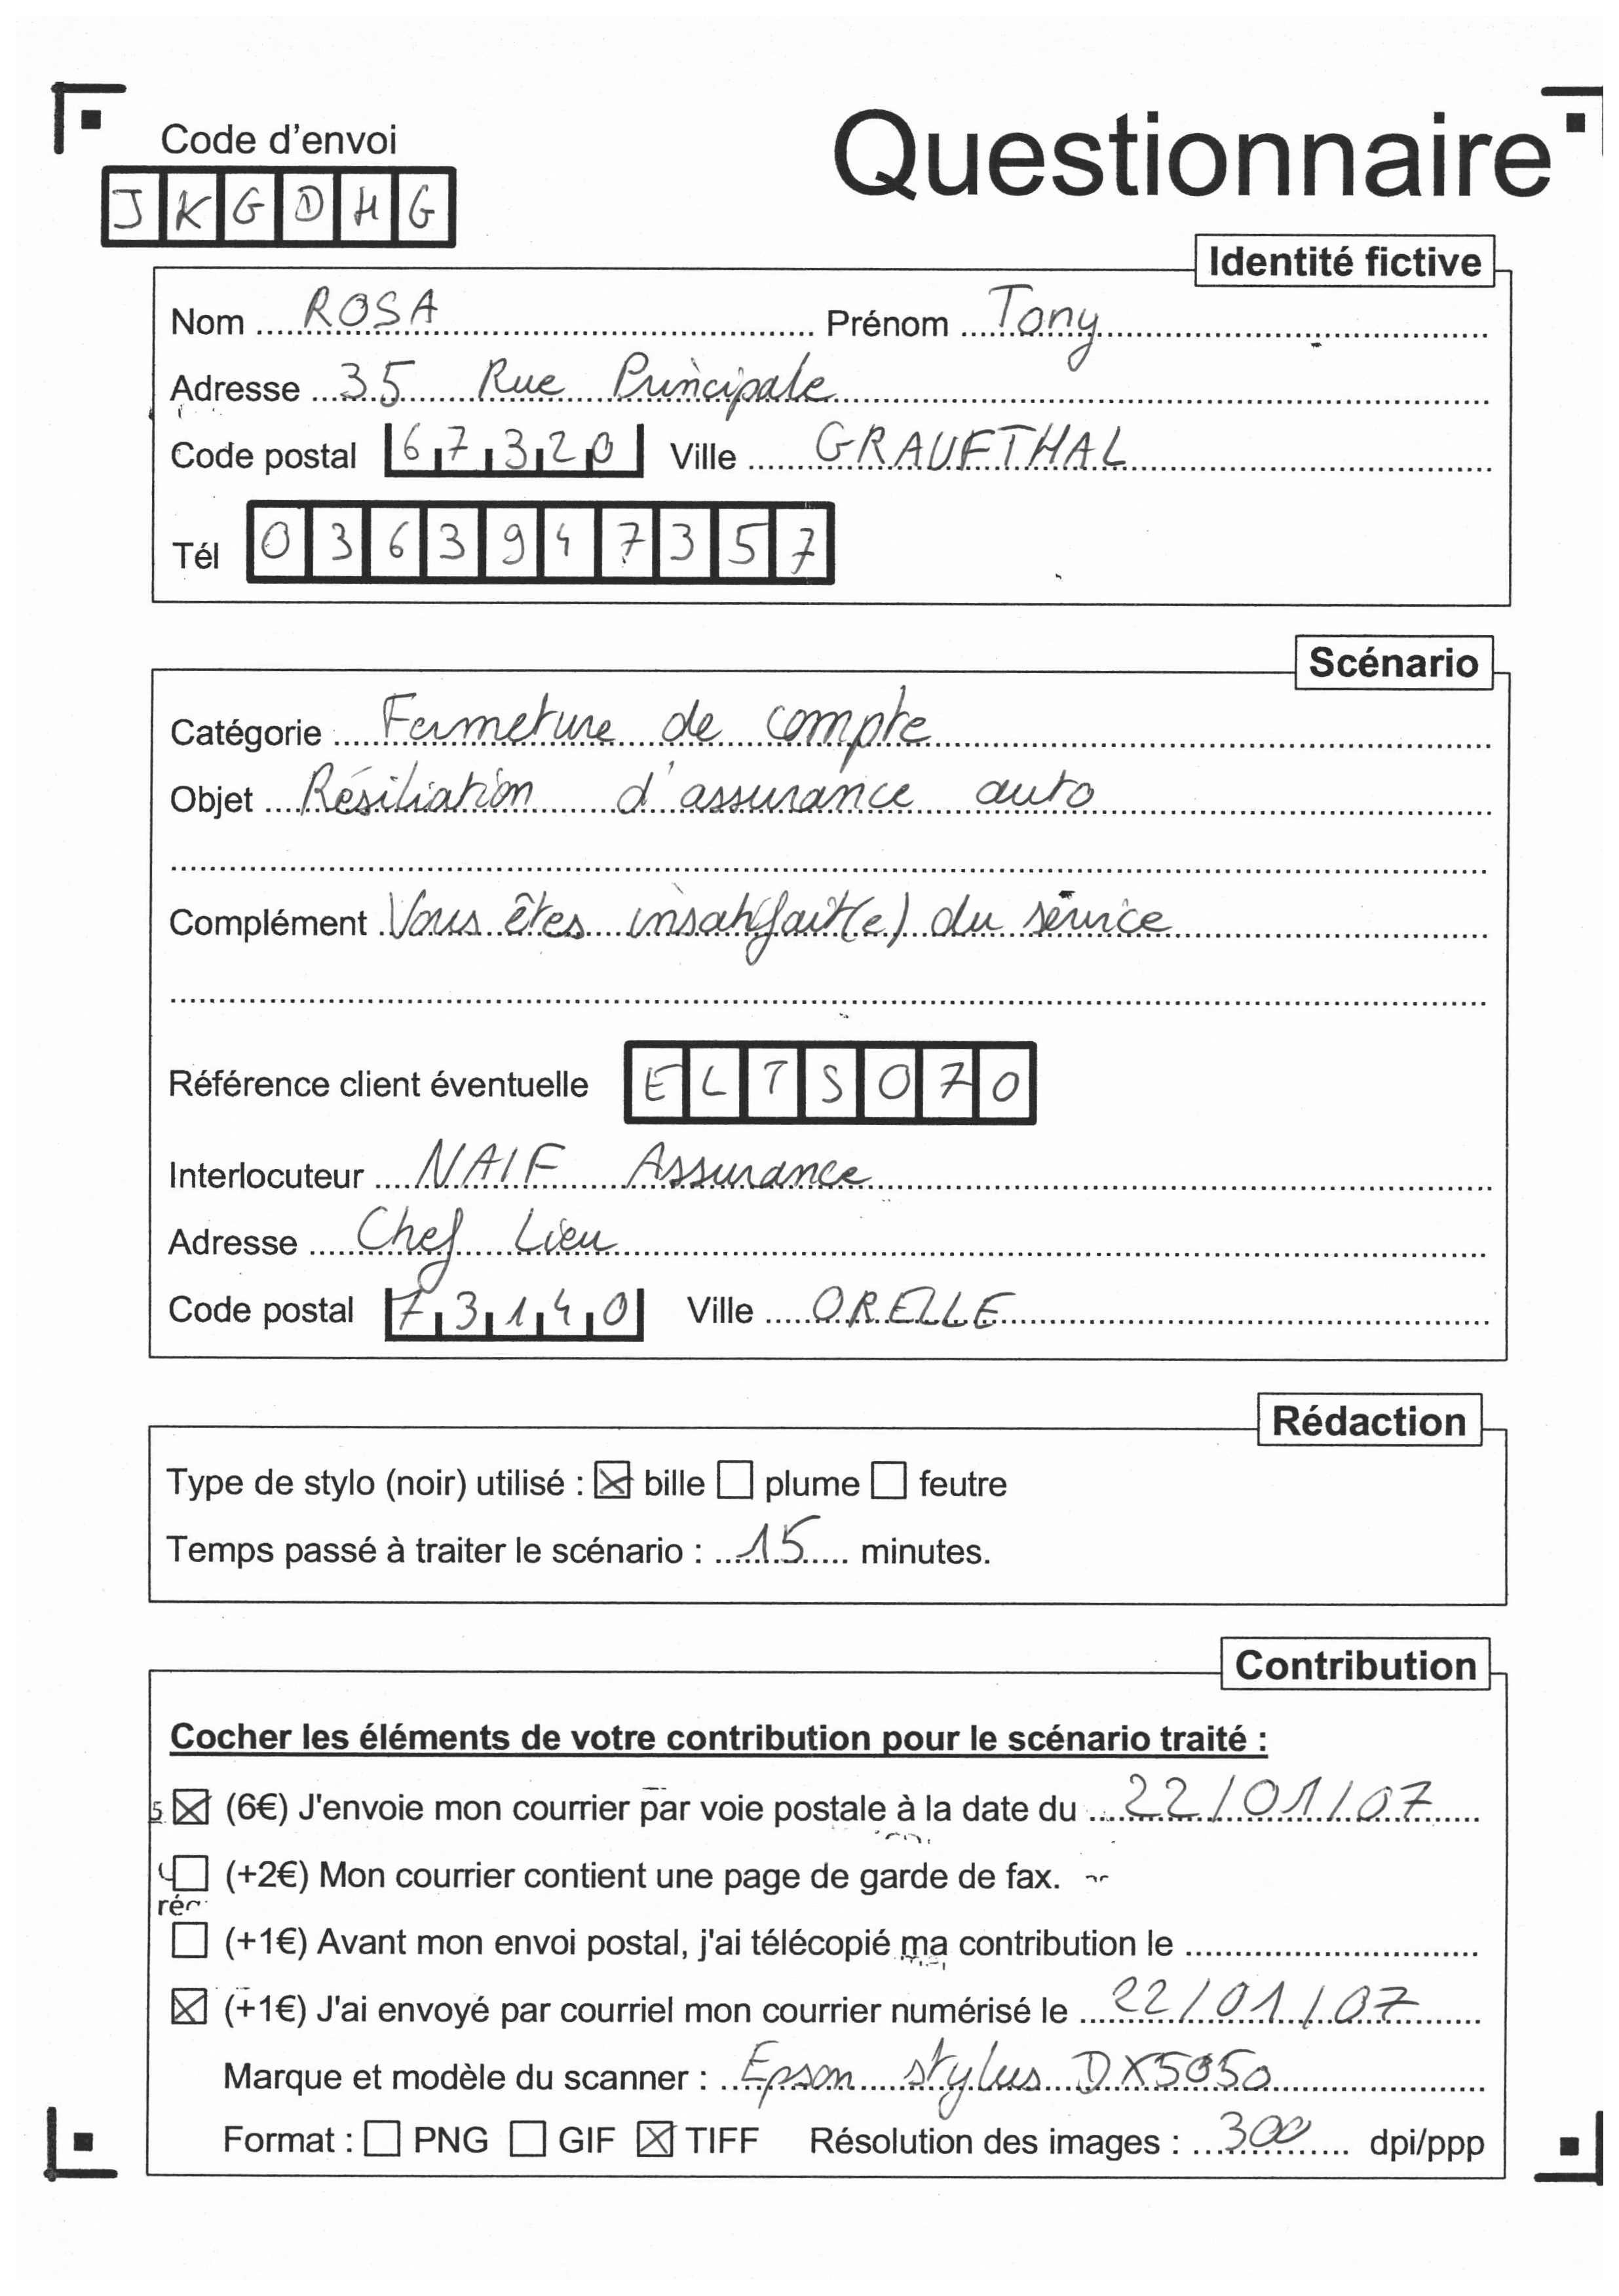 Code d'envoi
Questionnaire
JKGDHG
Identité fictive
Nom ROSA Prénom Tony
Adresse 35 Rue Principale
Code postal 67320 Ville GRAUFTHAL
Tél 0363947357
Scénario
Catégorie Fermeture de compte
Objet Résiliation d'assurance auto
Complément Vous êtes insatisfait(e) du service
Référence client éventuelle ELTS070
Interlocuteur NAIF Assurance
Adresse Chef Lieu
Code postal 73140 Ville ORELLE
Rédaction
Type de stylo (noir) utilisé : ☒ bille ☐ plume ☐ feutre
Temps passé à traiter le scénario : 15 minutes.
Contribution
Cocher les éléments de votre contribution pour le scénario traité :
☒ (6€) J'envoie mon courrier par voie postale à la date du 22/01/07
☐ (+2€) Mon courrier contient une page de garde de fax.
☐ (+1€) Avant mon envoi postal, j'ai télécopié ma contribution le
☒ (+1€) J'ai envoyé par courriel mon courrier numérisé le 22/01/07
Marque et modèle du scanner : Epson stylus DX5050
Format : ☐ PNG ☐ GIF ☒ TIFF Résolution des images : 300 dpi/ppp